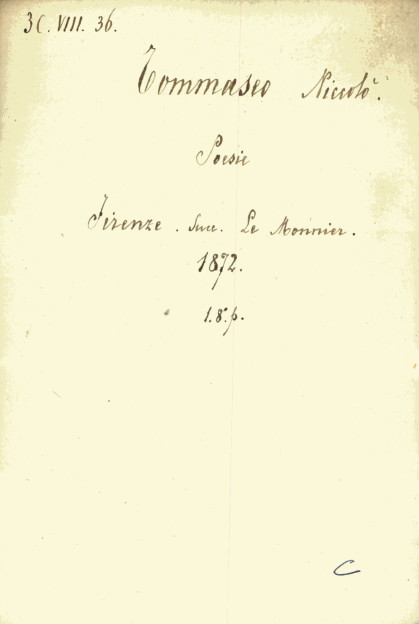 3C. VIII. 36.
Tommaseo Niccolò.
Poesie
Firenze. Succ. Le Monnier.
1872.
1.8.° p.
C